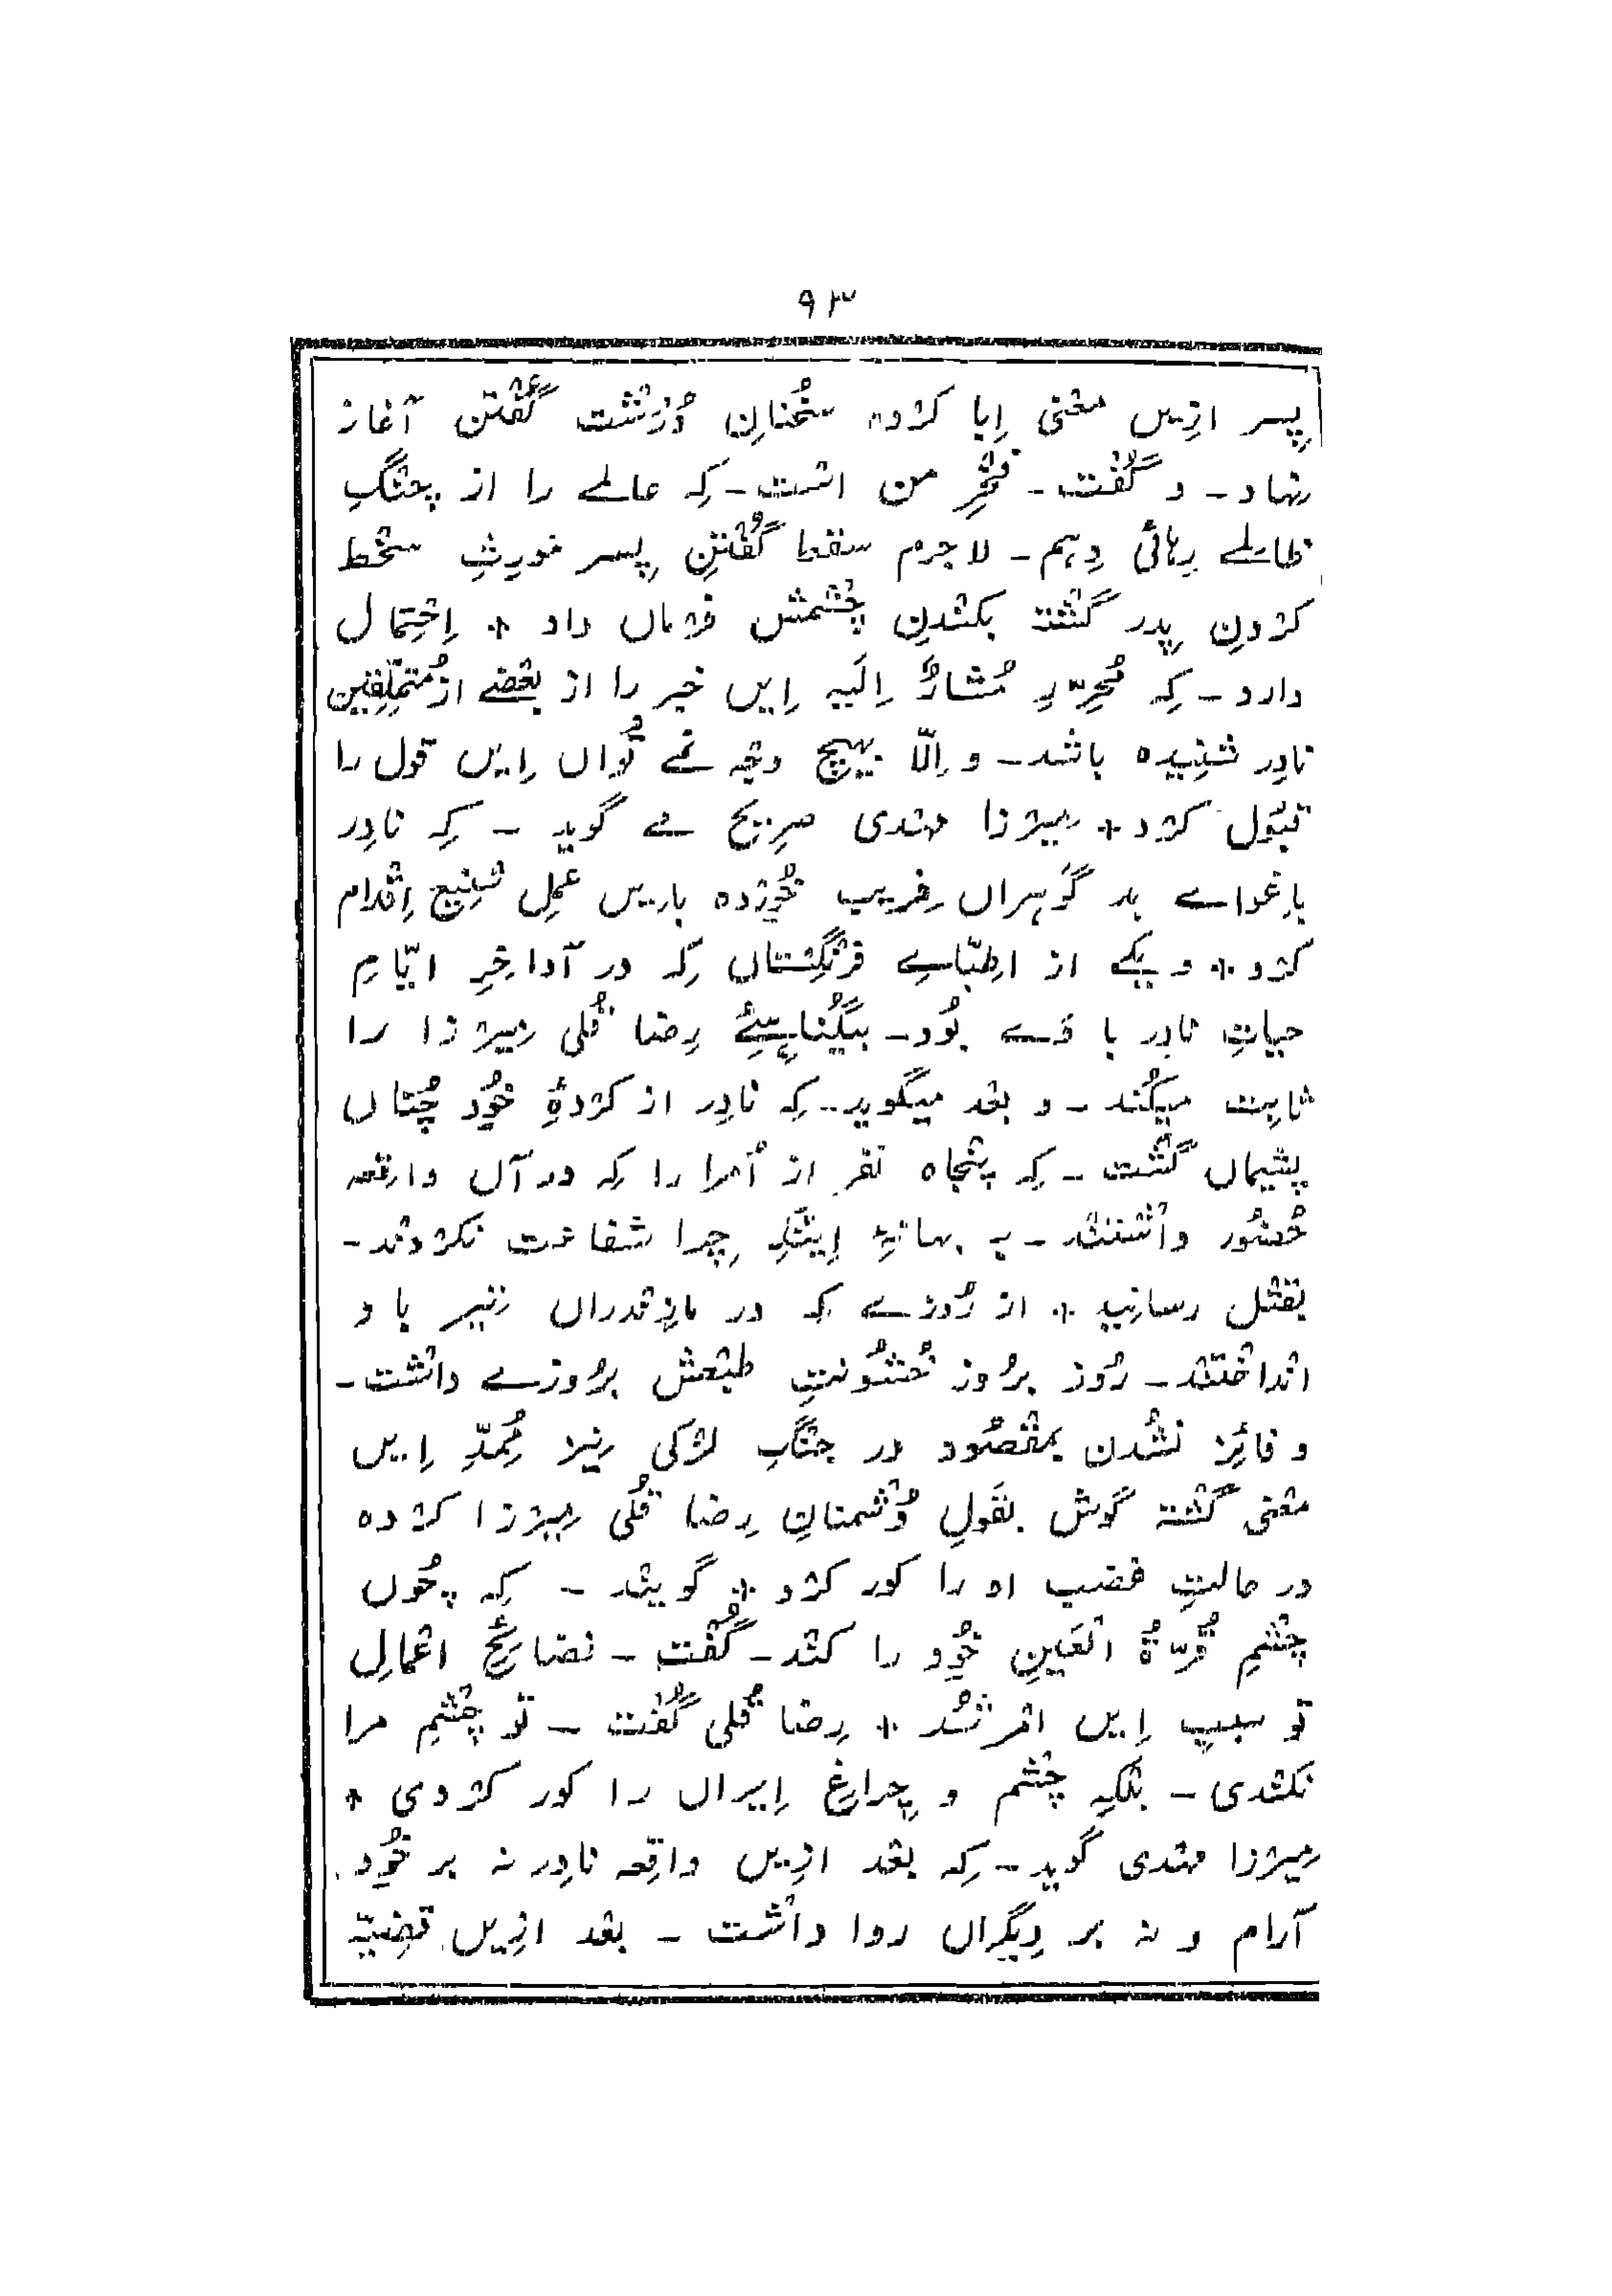 ۹۳
پسر ازیں معنی اِبا کرده سخُنانِ دُرُشت گُفتن آغاز
نهاد - و گُفت - فخرِ من است - کِه عالمے را از چنگِ
ظالمے رِہائی دِہم - لاجرم سقط گُفتنِ پِسر مورِثِ سخط
کردنِ پِدر گشتہ بکندنِ چشمش فرماں داد * اِحتِمال
دارد - کِه مُحرِّرِ مُشارٌ اِلَیہ اِیں خبر را از بعضے از مُتملِّقینِ
نادِر شنیده باشد - و اِلّا بہیچ وجہ نمے تُواں اِیں قول را
قبُول کرد * میرزا مہدی صرِیح مے گوید - کِه نادِر
باِغواے بد گوہراں فریب خُورده باِیں عملِ شنِیع اِقدام
کرد * و یکے از اطِبّاےِ فرنگِستاں کِه در آواخِرِ ایّامِ
حیاتِ نادِر با وَے بُود - بیگُناہیِٔ رِضا قُلی میرزا را
ثابِت میکُند - و بعد میگوید - کِه نادِر از کردۂِ خُود چُناں
پشیماں گشت - کِه پنجاه نفر از اُمرا را کِه در آں واقعہ
حُضُور داشتند - بہ بہانۂِ اِینکہ چِرا شفاعت نکردند -
بقتل رسانید * از رُوزے کہ در مازندراں تیر باو
انداختند - رُوز برُوز خُشُونتِ طبعش برُوزے داشت -
و فائِز نشُدن بمقصُود در جنگِ لزکی نیز مُمِدِّ اِیں
معنی گشتہ گوش بقَولِ دُشمنانِ رِضا قُلی میرزا کرده
در حالتِ غضب او را کور کرد * گویند - کہ چُوں
چشمِ قُرّةُ العَینِ خُود را کند - گُفت - فضائحِ اعمالِ
تو سببِ اِیں امر شُد * رِضا قُلی گُفت - تو چشمِ مرا
نکندی - بلکہ چشم و چراغِ اِیراں را کور کردی *
میرزا مہدی گوید - کِه بعد ازیں واقِعہ نادِر نہ بر خُود
آرام و نہ بر دِیگراں روا داشت - بعد ازِیں قضِیّہ